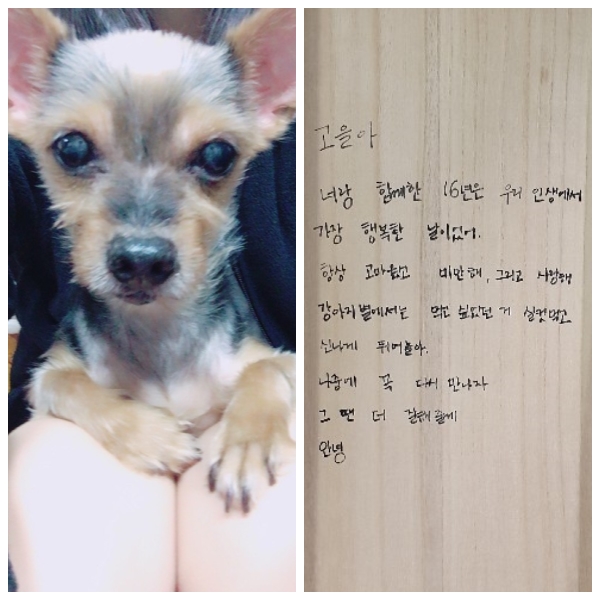 고을아
너랑 함께한 16년은 우리 인생에서
가장 행복한 날이었어.
항상 고마웠고 미안해, 그리고 사랑해
강아지별에서는 먹고 싶었던 거 실컷먹고
신나게 뛰어놀아.
나중에 꼭 다시 만나자
그 땐 더 잘해줄게
안녕